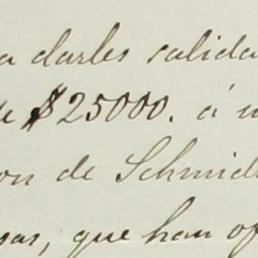 a darles salida
de $25000. á u
on de Schmid
sas, que han of